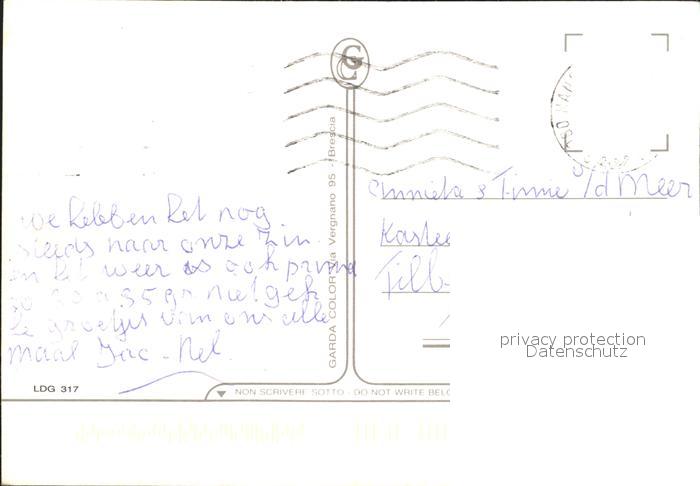 we hebben het nog
steeds naar onze zin.
en het weer is ook prima
zo 30 a 35 gr niet gek
de groetjes van ons alle
maal Jac - Nel.
LDG 317
GARDA COLOR Via Vergnano 95 - Brescia
GC
& Tinnie v/d Meer
Kastee
Tilb-
NON SCRIVERE SOTTO - DO NOT WRITE BELO
privacy protection
Datenschutz